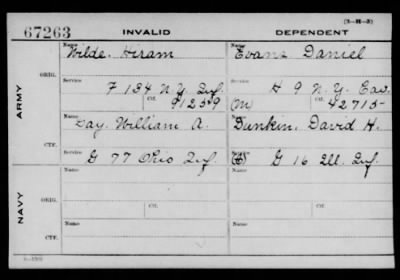 (3-H-3)
67263 INVALID DEPENDENT
Name Name
Wilde, Hiram Evans Daniel
ORIG.
Service Service
F 184 N.Y. Inf. H 9 N.Y. Cav.
Ctf. Ctf.
912529 (M) 42715-
ARMY
Name Name
Day, William A. Dunkin, David H.
CTF.
Service Service
G 77 Ohio Inf. G 16 Ill. Inf.
Name Name
ORIG.
Ctf. Ctf.
NAVY
Name Name
CTF.